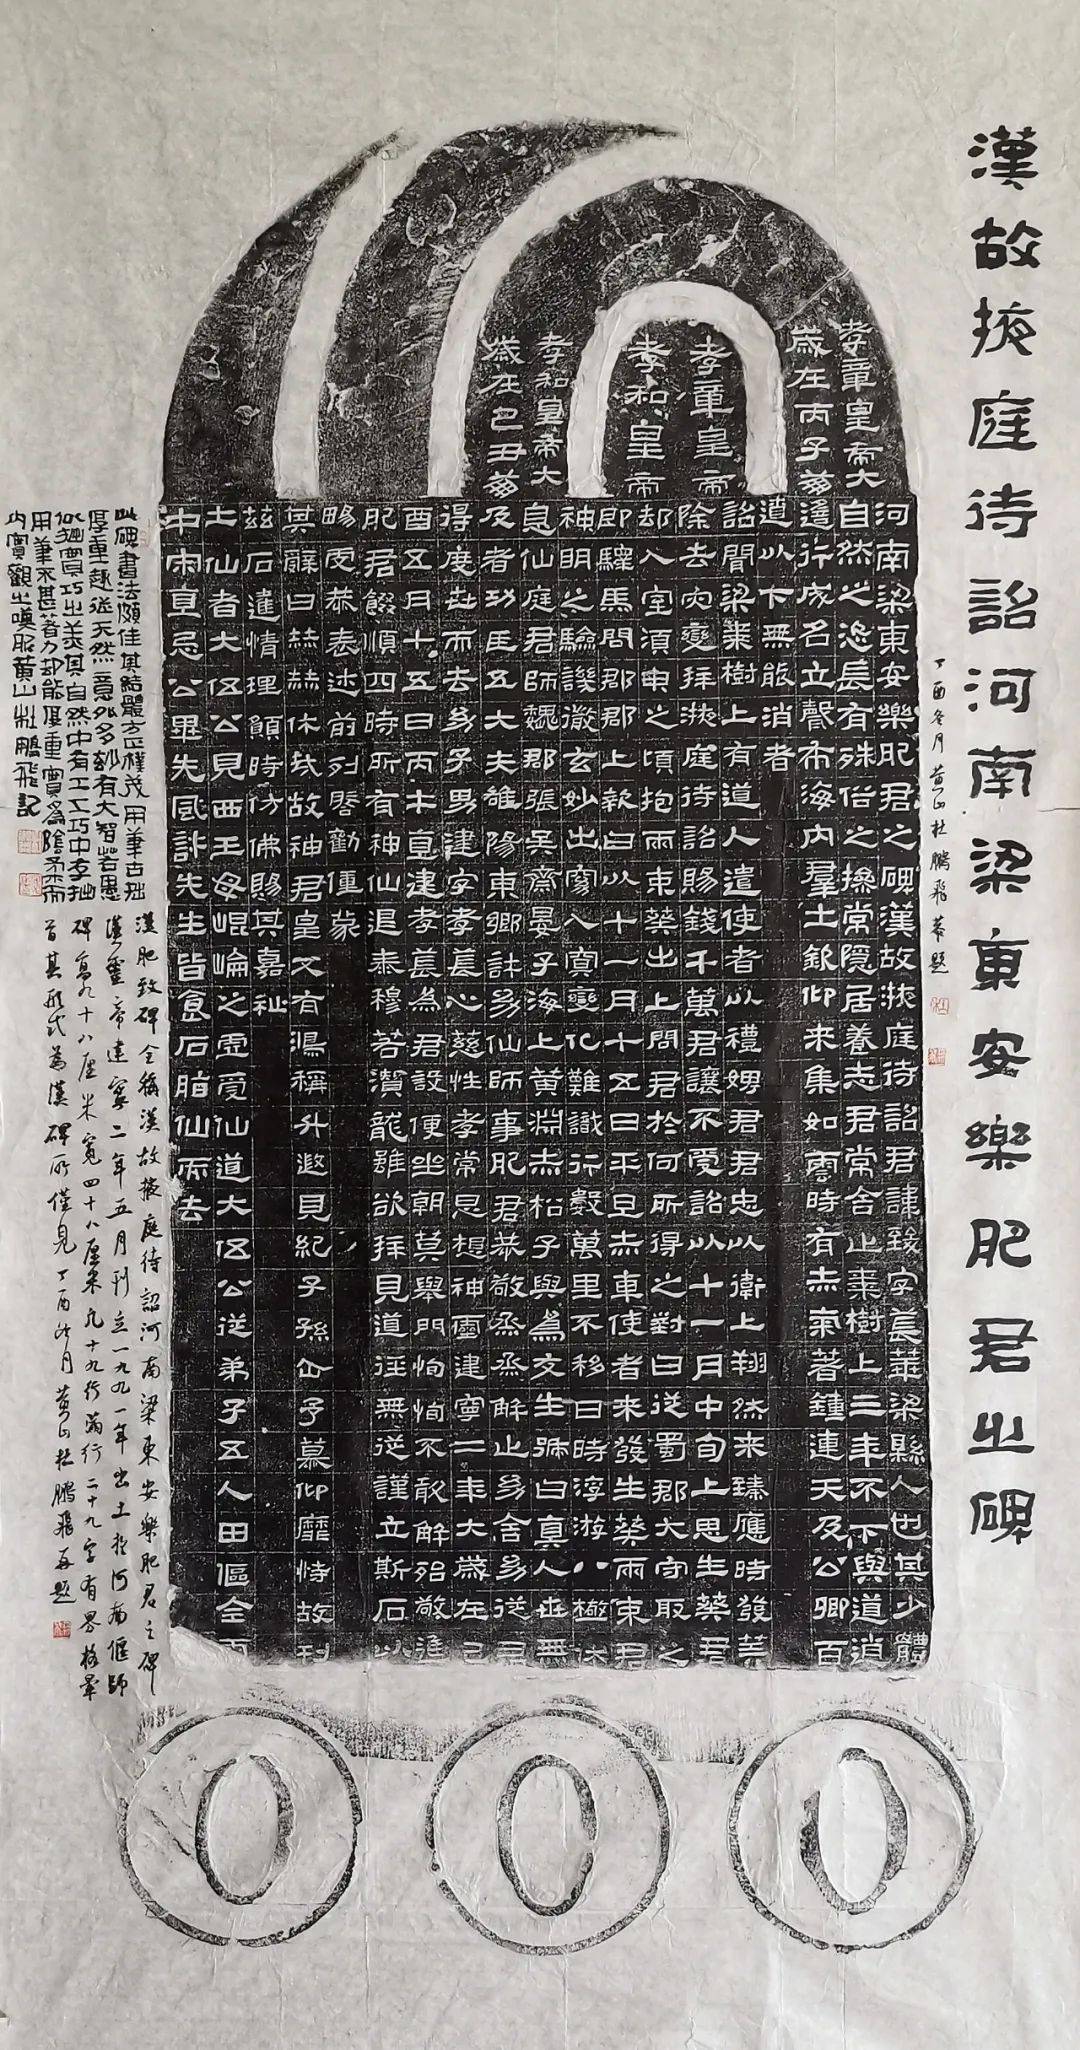 漢故掖庭待詔河南梁東安樂肥君之碑
丁酉冬月黃山杜鵬飛恭題
孝章皇帝大
歲在丙子崩
孝章皇帝
孝和皇帝
孝和皇帝大
歲在己丑崩
河南梁東安樂肥君之碑漢故掖庭待詔君諱致字萇華梁縣人也其少體
自然之恣長有殊俗之操常隱居養志君常舍止棗樹上三年不下與道逍
遙行成名立聲布海內羣士欽仰來集如雲時有赤氣著鍾連天及公卿百
遼以下無能消者
詔聞梁棗樹上有道人遣使者以禮娉君君忠以衛上翔然來臻應時發筭
除去灾變拜掖庭待詔賜錢千萬君讓不受詔以十一月中旬上思生葵君
却入室須臾之頃抱兩束葵出上問君於何所得之對曰從蜀郡大守取之
即驛馬問郡郡上報曰以十一月十五日平旦赤車使者來發生葵兩束君
神明之驗譏徹玄妙出窈入冥變化難識行數萬里不移日時浮游八極休
息仙庭君師魏郡張吳齋晏子海上黃淵赤松子與為友生號曰真人世無
及者功臣五大夫雒陽東鄉許幼仙師事肥君恭敬烝烝解止幼舍幼從君
得度世而去幼子男建字孝萇心慈性孝常思想神靈建寧二年大歲在己
酉五月十五日丙午直建孝萇為君設便坐朝莫舉門恂恂不敢解殆敬進
肥君餟順四時所有神仙退泰穆若潛龍雖欲拜見道徑無從謹立斯石以
暢虔恭表述前列啓勸僮蒙
其辭曰赫赫休哉故神君皇又有鴻稱升遐見紀子孫企予慕仰靡恃故刊
茲石達情理願時仿佛賜其嘉祉
土仙者大伍公見西王母崐崘之虛受仙道大伍公從弟子五人田傴全雨
中宋直忌公畢先風許先生皆食石脂仙而去
此碑書法頗佳其結體方正樸茂用筆古拙
厚重趣從天然意外多妙有大智若愚
似拙實巧之美其自然中有工工巧中存拙
用筆不甚著力却能厚重實為陰柔而
內實觀之嘆服黃山杜鵬飛記
漢肥致碑全稱漢故掖庭待詔河南梁東安樂肥君之碑
漢靈帝建寧二年五月刊立一九九一年出土於河南偃師
碑高九十八厘米寬四十八厘米凡十九行滿行二十九字有界格暈
首其形式為漢碑所僅見丁酉冬月黃山杜鵬飛再題